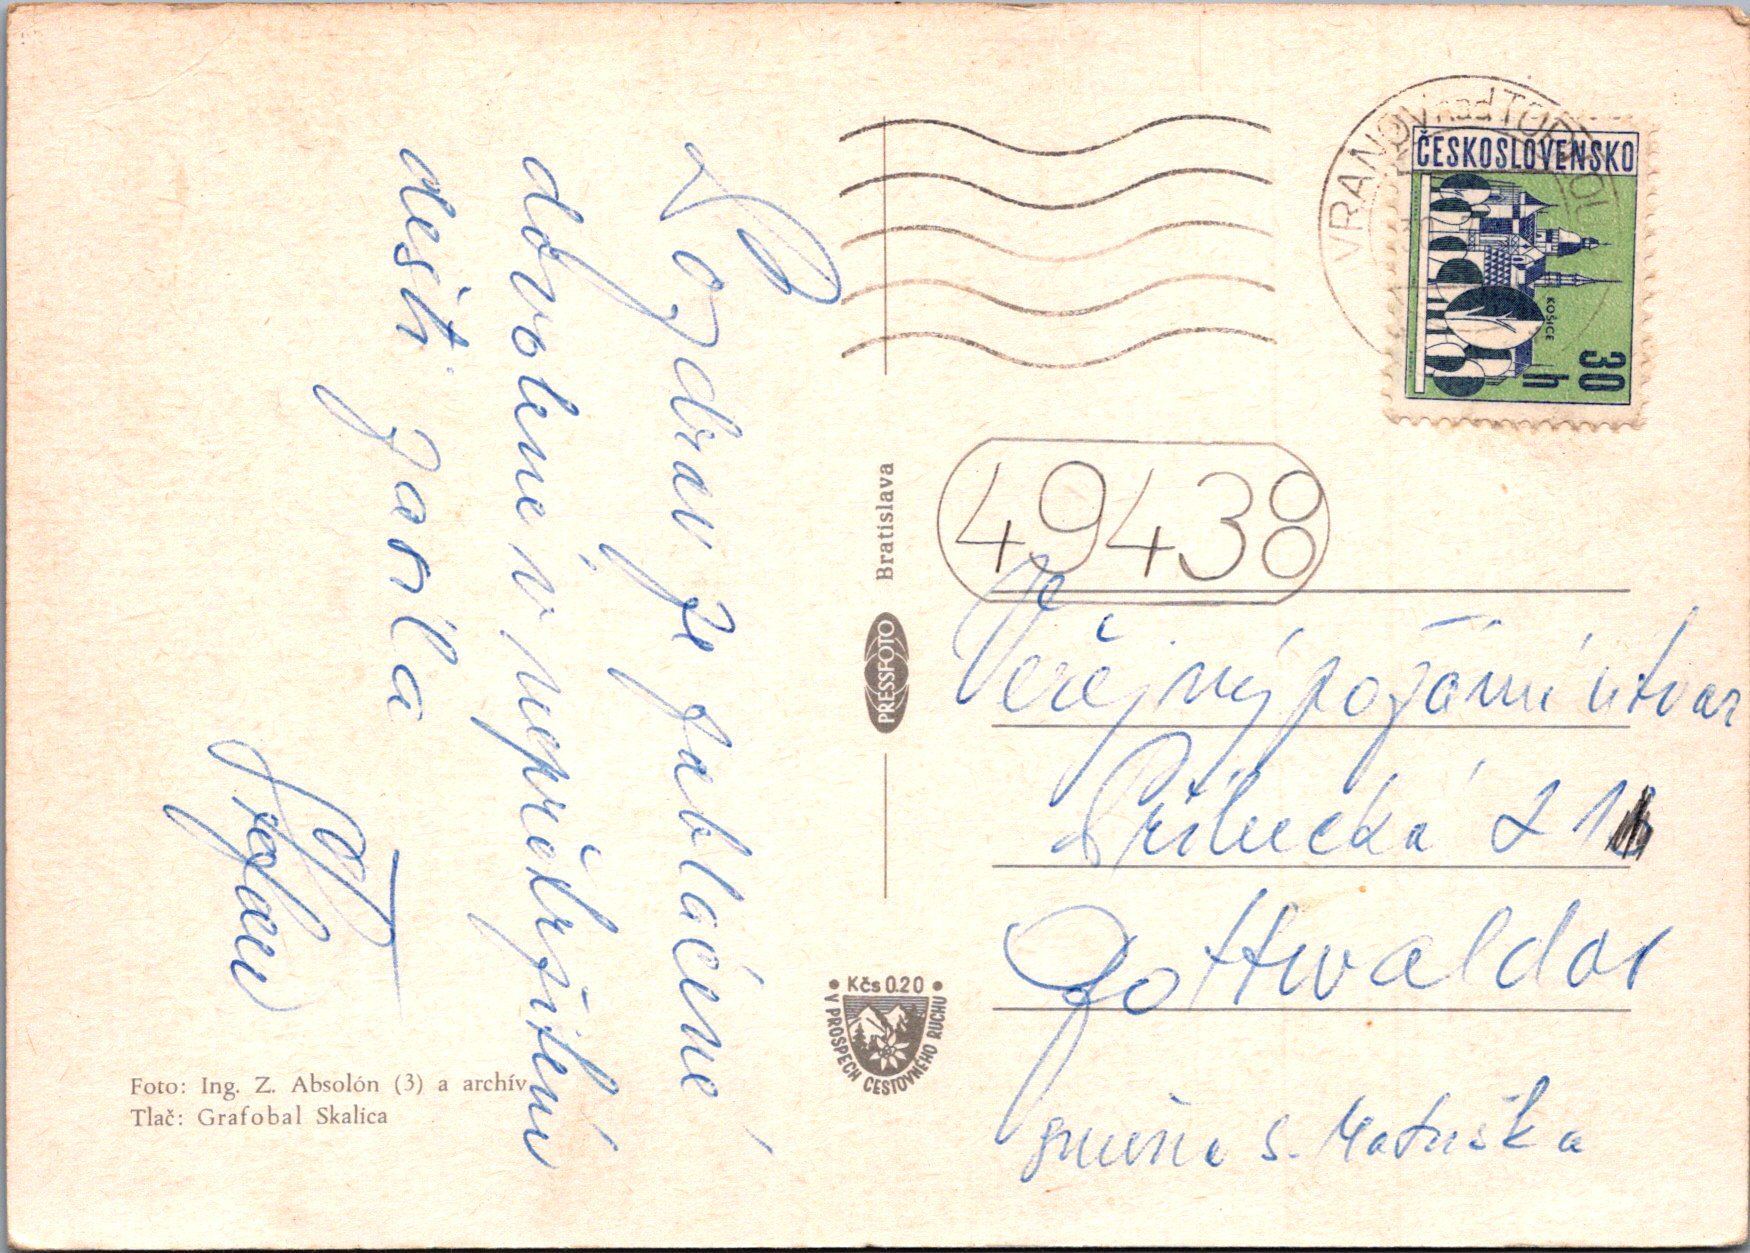 Pozdrav ze zablácené
dovolené v nepřetržitém
dešti zasílá
Foto: Ing. Z. Absolón (3) a archív
Tlač: Grafobal Skalica
Bratislava
PRESSFOTO
• Kčs 0.20 •
V PROSPECH CESTOVNÉHO RUCHU
VRANOV nad TOPĽOU
ČESKOSLOVENSKO
KOŠICE
30 h
49438
Veřejný požární útvar
Přílucká 21
Gottwaldov
směna s. Matuška